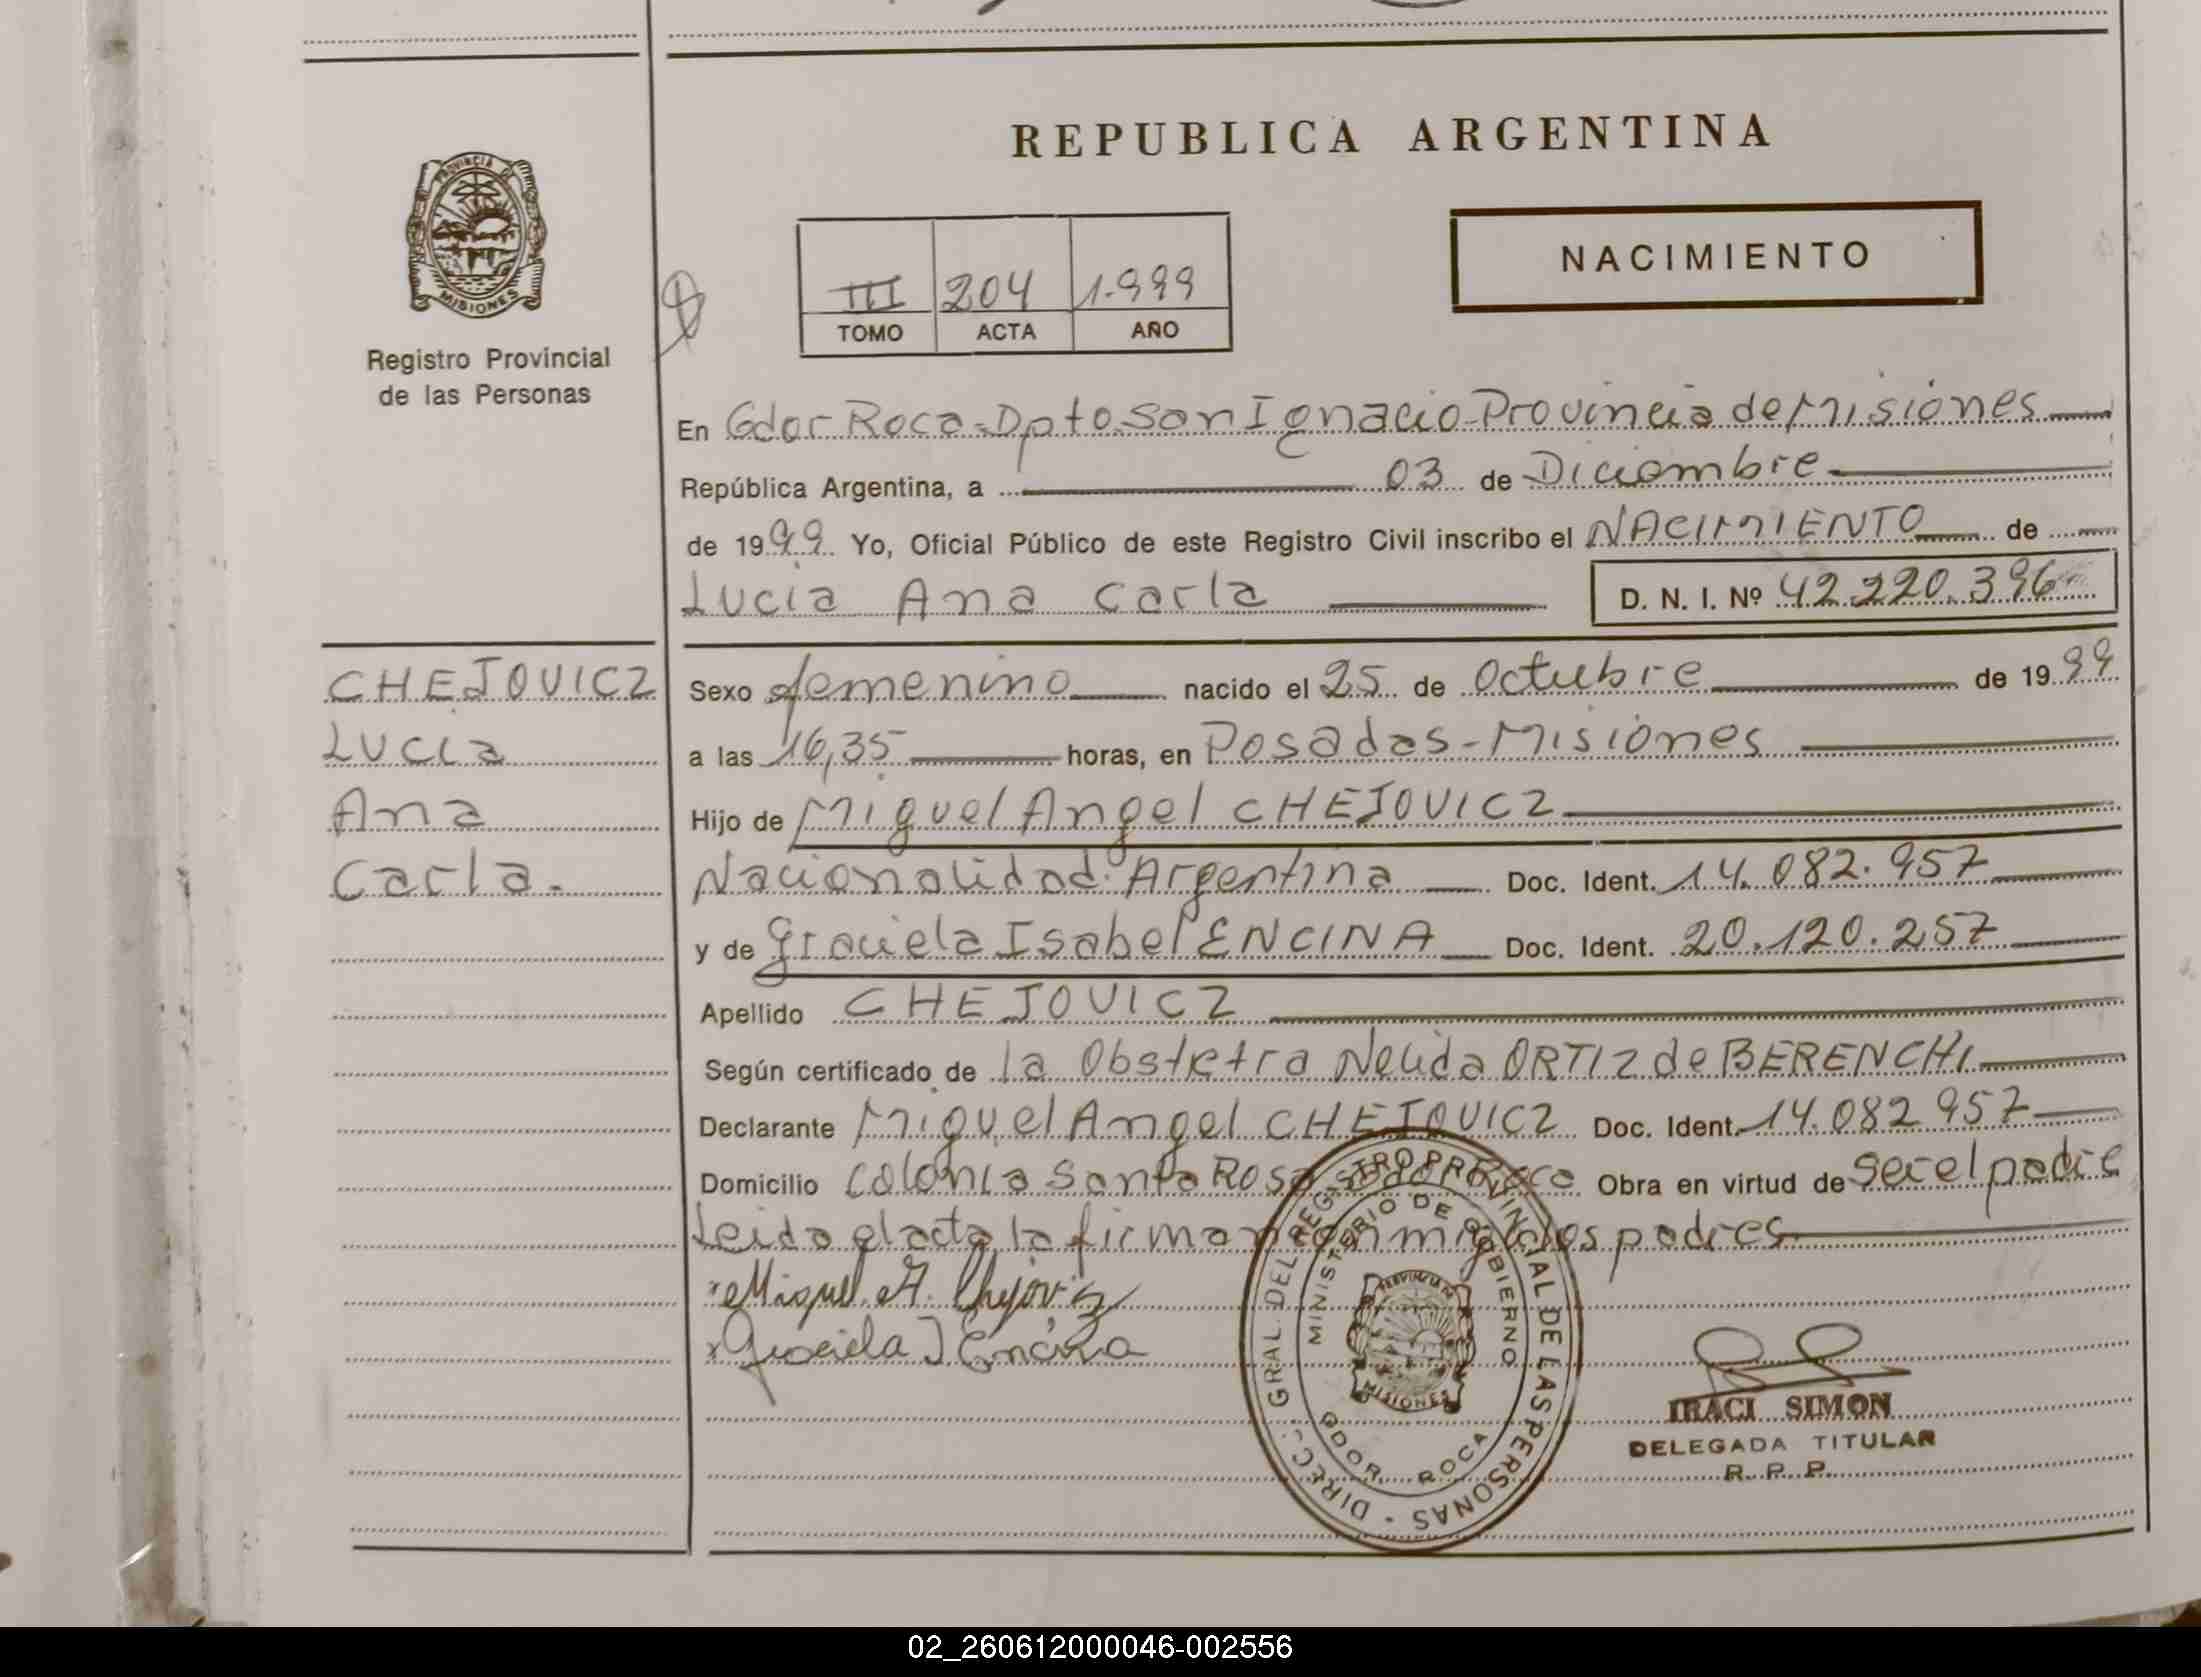 REPUBLICA ARGENTINA
PROVINCIA DE MISIONES
Registro Provincial
de las Personas
III 204 1.999
TOMO ACTA AÑO
NACIMIENTO
En Gdor Roca-Dpto.San Ignacio-Provincia de Misiones
República Argentina, a 03 de Diciembre
de 1999 Yo, Oficial Público de este Registro Civil inscribo el NACIMIENTO de
Lucia Ana Carla D. N. I. Nº 42.220.396
CHEJOVICZ
Lucia
Ana
Carla.
Sexo femenino nacido el 25 de Octubre de 1999
a las 16,35 horas, en Posadas-Misiones
Hijo de Miguel Angel CHEJOVICZ
Nacionalidad: Argentina Doc. Ident. 14.082.957
y de Graciela Isabel ENCINA Doc. Ident. 20.120.257
Apellido CHEJOVICZ
Según certificado de la Obstetra Nelida ORTIZ de BERENCHI
Declarante Miguel Angel CHEJOVICZ Doc. Ident. 14.082957
Domicilio Colonia Santa Rosa Gdor Roca Obra en virtud de ser el padre
Leida el acta la firman conmigo los padres
Miguel A. Chejovicz
Graciela I Encina
DIREC. GRAL. DEL REGISTRO PROVINCIAL DE LAS PERSONAS
MINISTERIO DE GOBIERNO
PROVINCIA DE MISIONES
GDOR. ROCA
IRACI SIMON
DELEGADA TITULAR
R. P. P.
02_260612000046-002556